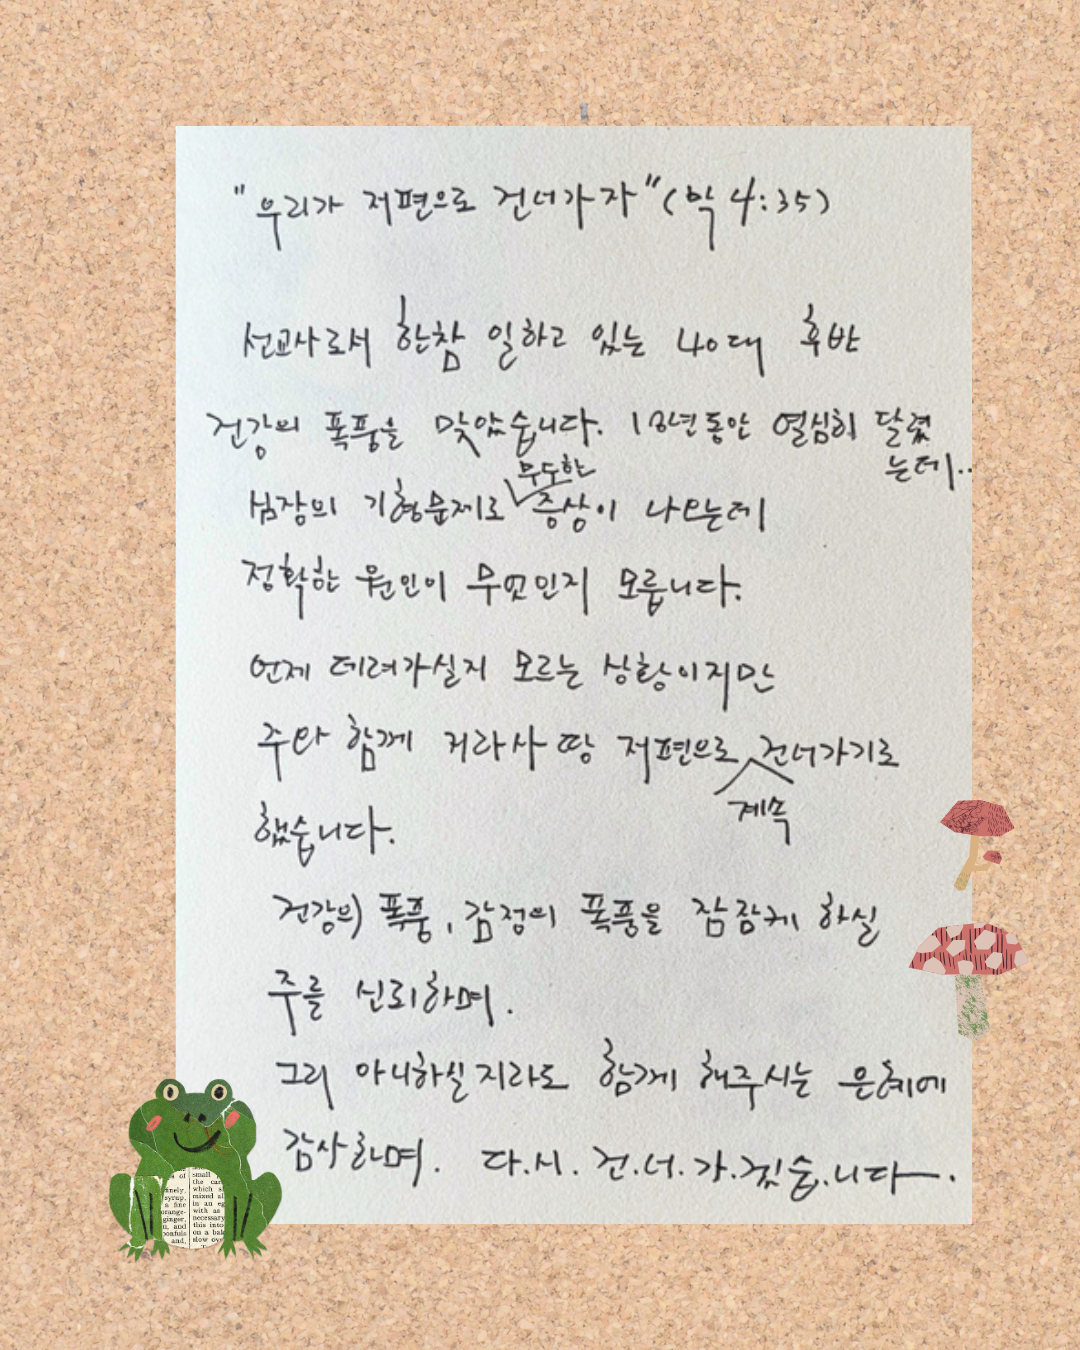 "우리가 저편으로 건너가자" (막 4:35)
선교사로서 한참 일하고 있는 40대 후반
건강의 폭풍을 맞았습니다. 18년동안 열심히 달렸
는데..
심장의 기형문제로 증상이 나오는데
정확한 원인이 무엇인지 모릅니다.
언제 데려가실지 모르는 상황이지만
주와 함께 거라사 땅 저편으로 건너가기로
계속
했습니다.
건강의 폭풍, 감정의 폭풍을 잠잠케 하실
주를 신뢰하며.
그리 아니하실지라도 함께 해주시는 은혜에
감사하며. 다.시.건.너.가.겠습.니다.